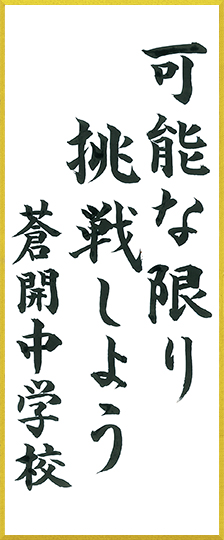 可能な限り
挑戦しよう
蒼開中学校